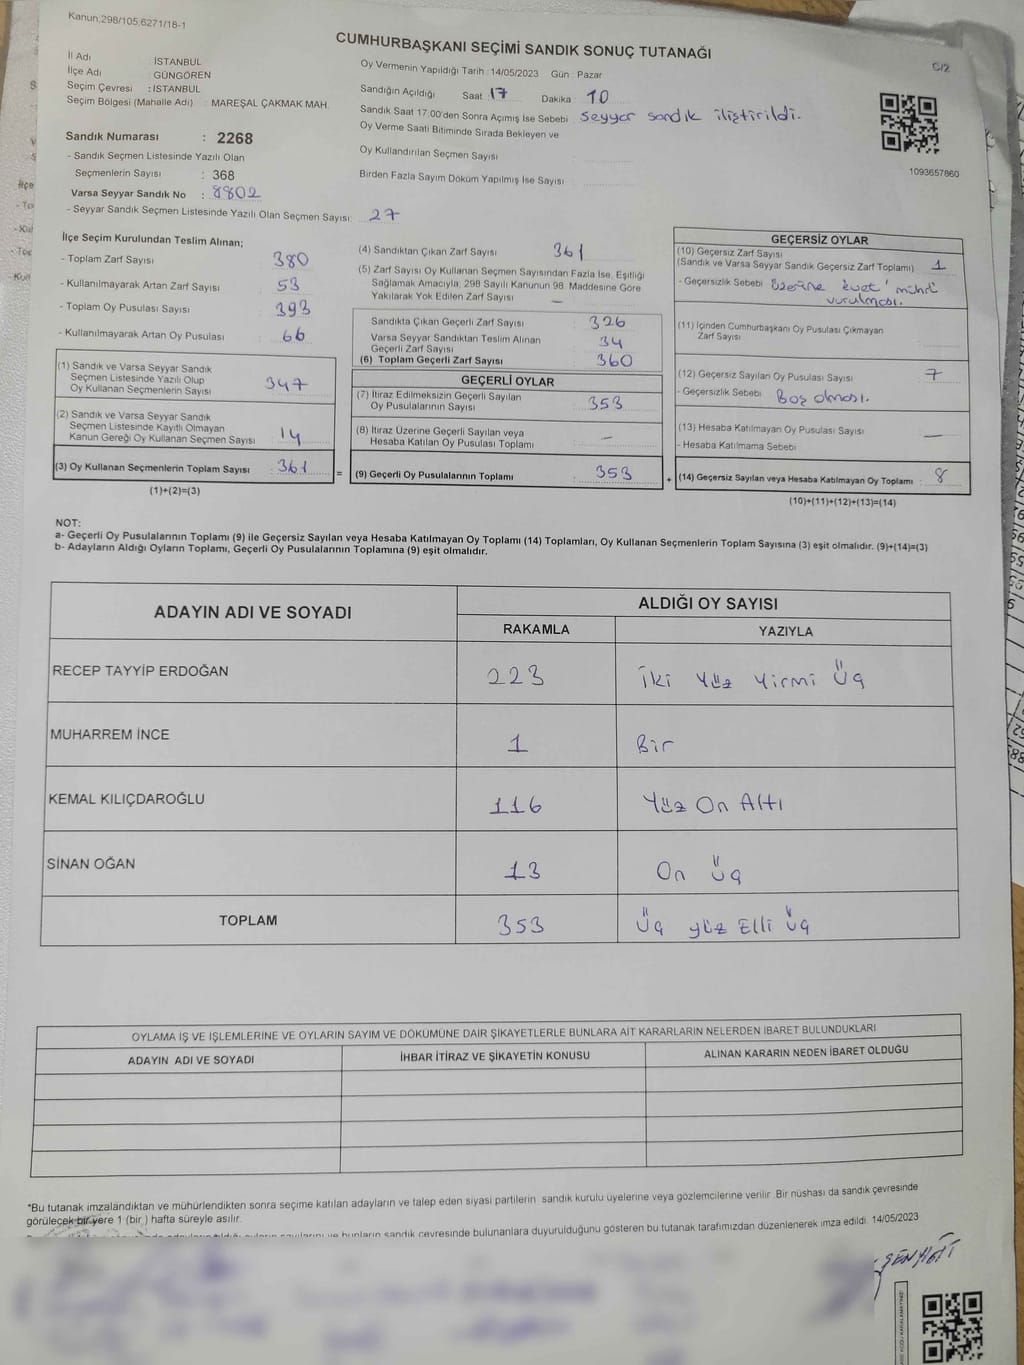 Kanun;298/105,6271/18-1
CUMHURBAŞKANI SEÇİMİ SANDIK SONUÇ TUTANAĞI
C/2
İl Adı : İSTANBUL
İlçe Adı : GÜNGÖREN
Seçim Çevresi : İSTANBUL
Seçim Bölgesi (Mahalle Adı) : MAREŞAL ÇAKMAK MAH.
Sandık Numarası : 2268
- Sandık Seçmen Listesinde Yazılı Olan
Seçmenlerin Sayısı : 368
Varsa Seyyar Sandık No : 8802
- Seyyar Sandık Seçmen Listesinde Yazılı Olan Seçmen Sayısı 27
Oy Vermenin Yapıldığı Tarih : 14/05/2023 Gün : Pazar
Sandığın Açıldığı Saat 17 Dakika : 10
Sandık Saat 17:00'den Sonra Açımış İse Sebebi Seyyar sandık iliştirildi.
Oy Verme Saati Bitiminde Sırada Bekleyen ve
Oy Kullandırılan Seçmen Sayısı
Birden Fazla Sayım Döküm Yapılmış İse Sayısı
1093657860
İlçe Seçim Kurulundan Teslim Alınan;
- Toplam Zarf Sayısı : 380
- Kullanılmayarak Artan Zarf Sayısı : 53
- Toplam Oy Pusulası Sayısı : 393
- Kullanılmayarak Artan Oy Pusulası : 66
(1) Sandık ve Varsa Seyyar Sandık
Seçmen Listesinde Yazılı Olup
Oy Kullanan Seçmenlerin Sayısı 347
(2) Sandık ve Varsa Seyyar Sandık
Seçmen Listesinde Kayıtlı Olmayan
Kanun Gereği Oy Kullanan Seçmen Sayısı : 14
(3) Oy Kullanan Seçmenlerin Toplam Sayısı : 361
(1)+(2)=(3)
(4) Sandıktan Çıkan Zarf Sayısı 361
(5) Zarf Sayısı Oy Kullanan Seçmen Sayısından Fazla İse, Eşitliği
Sağlamak Amacıyla, 298 Sayılı Kanunun 98. Maddesine Göre
Yakılarak Yok Edilen Zarf Sayısı —
Sandıkta Çıkan Geçerli Zarf Sayısı : 326
Varsa Seyyar Sandıktan Teslim Alınan
Geçerli Zarf Sayısı : 34
(6) Toplam Geçerli Zarf Sayısı 360
GEÇERLİ OYLAR
(7) İtiraz Edilmeksizin Geçerli Sayılan
Oy Pusulalarının Sayısı : 353
(8) İtiraz Üzerine Geçerli Sayılan veya
Hesaba Katılan Oy Pusulası Toplamı : —
= (9) Geçerli Oy Pusulalarının Toplamı : 353
GEÇERSİZ OYLAR
(10) Geçersiz Zarf Sayısı
(Sandık ve Varsa Seyyar Sandık Geçersiz Zarf Toplamı) : 1
- Geçersizlik Sebebi üzerine 'evet' mührü
vurulması.
(11) İçinden Cumhurbaşkanı Oy Pusulası Çıkmayan
Zarf Sayısı
(12) Geçersiz Sayılan Oy Pusulası Sayısı : 7
- Geçersizlik Sebebi Boş olması.
(13) Hesaba Katılmayan Oy Pusulası Sayısı : —
- Hesaba Katılmama Sebebi
+ (14) Geçersiz Sayılan veya Hesaba Katılmayan Oy Toplamı : 8
(10)+(11)+(12)+(13)=(14)
NOT:
a- Geçerli Oy Pusulalarının Toplamı (9) ile Geçersiz Sayılan veya Hesaba Katılmayan Oy Toplamı (14) Toplamları, Oy Kullanan Seçmenlerin Toplam Sayısına (3) eşit olmalıdır. (9)+(14)=(3)
b- Adayların Aldığı Oyların Toplamı, Geçerli Oy Pusulalarının Toplamına (9) eşit olmalıdır.
ADAYIN ADI VE SOYADI ALDIĞI OY SAYISI
RAKAMLA YAZIYLA
RECEP TAYYİP ERDOĞAN 223 İki Yüz Yirmi Üç
MUHARREM İNCE 1 Bir
KEMAL KILIÇDAROĞLU 116 Yüz On Altı
SİNAN OĞAN 13 On Üç
TOPLAM 353 Üç yüz Elli Üç
OYLAMA İŞ VE İŞLEMLERİNE VE OYLARIN SAYIM VE DÖKÜMÜNE DAİR ŞİKAYETLERLE BUNLARA AİT KARARLARIN NELERDEN İBARET BULUNDUKLARI
ADAYIN ADI VE SOYADI İHBAR İTİRAZ VE ŞİKAYETİN KONUSU ALINAN KARARIN NEDEN İBARET OLDUĞU
*Bu tutanak imzalandıktan ve mühürlendikten sonra seçime katılan adayların ve talep eden siyasi partilerin sandık kurulu üyelerine veya gözlemcilerine verilir. Bir nüshası da sandık çevresinde
görülecek bir yere 1 (bir ) hafta süreyle asılır.
sandık çevresinde bulunanlara duyurulduğunu gösteren bu tutanak tarafımızdan düzenlenerek imza edildi. 14/05/2023